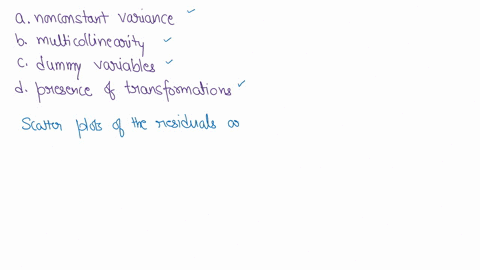 a. nonconstant variance ✓
b. multicollinearity ✓
c. dummy variables ✓
d. presence of transformations ✓
Scatter plots of the residuals